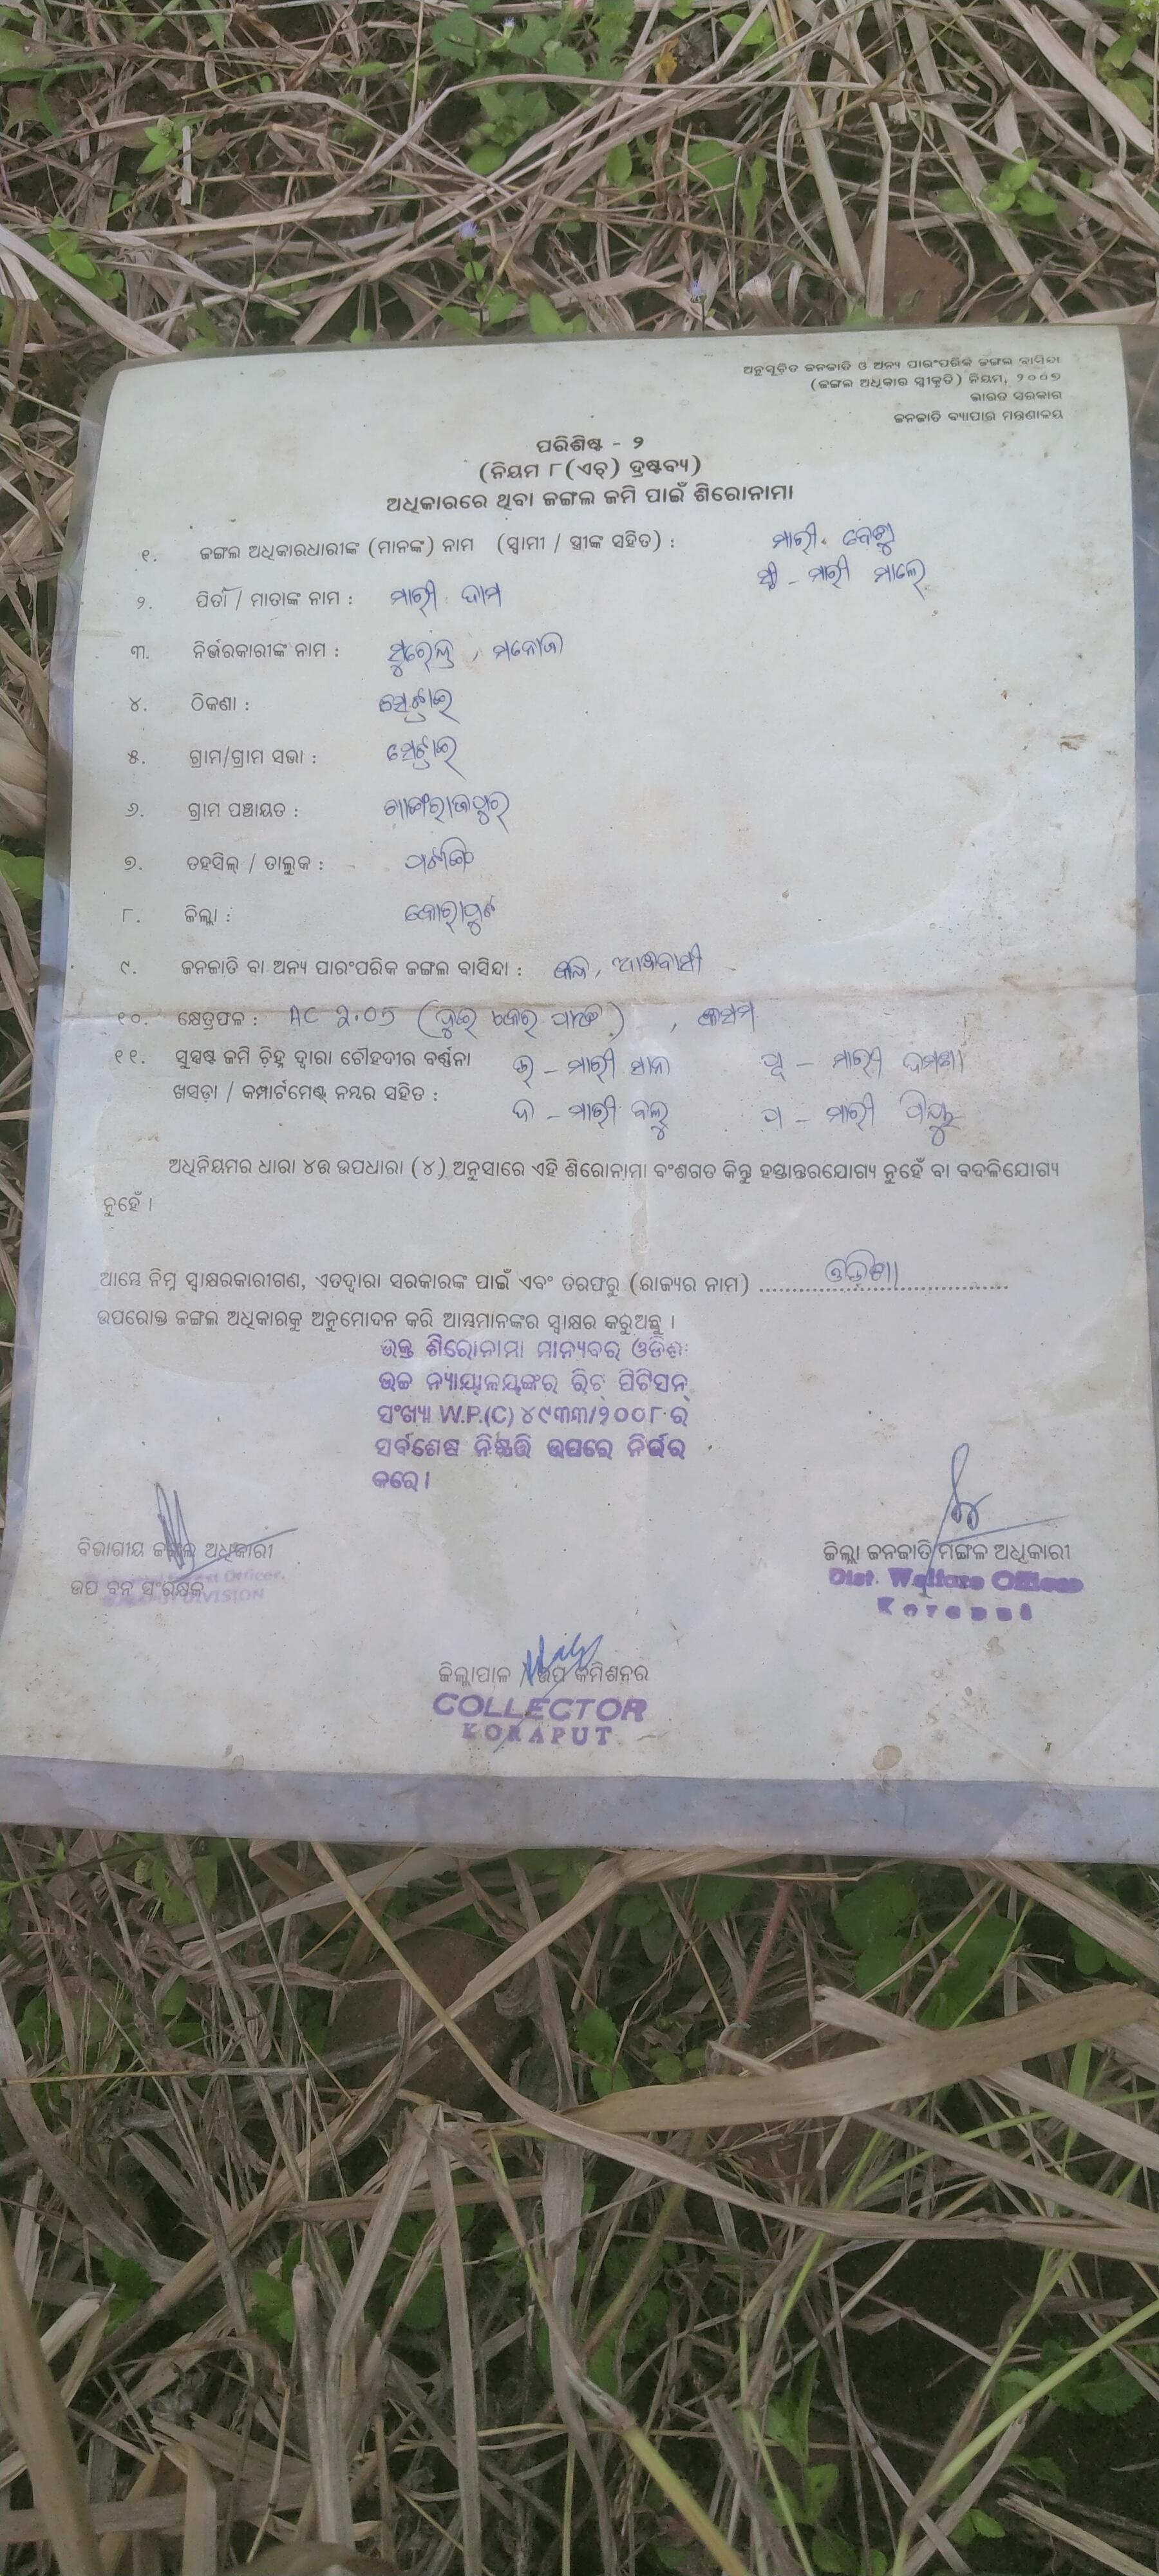 ଅନୁସୂଚିତ ଜନଜାତି ଓ ଅନ୍ୟ ପାରଂପରିକ ଜଙ୍ଗଲ ବାସିନ୍ଦା
(ଜଙ୍ଗଲ ଅଧିକାର ସ୍ୱୀକୃତି) ନିୟମ, ୨୦୦୭
ଭାରତ ସରକାର
ଜନଜାତି ବ୍ୟାପାର ମନ୍ତ୍ରଣାଳୟ
ପରିଶିଷ୍ଟ - ୨
(ନିୟମ ୮(ଏଚ୍) ଦ୍ରଷ୍ଟବ୍ୟ)
ଅଧିକାରରେ ଥିବା ଜଙ୍ଗଲ ଜମି ପାଇଁ ଶିରୋନାମା
୧. ଜଙ୍ଗଲ ଅଧିକାରଧାରୀଙ୍କ (ମାନଙ୍କ) ନାମ (ସ୍ୱାମୀ / ସ୍ତ୍ରୀଙ୍କ ସହିତ) : ମାରୀ
ସ୍ତ୍ରୀ - ମାରୀ ମାଲେ
୨. ପିତା / ମାତାଙ୍କ ନାମ : ମାରୀ ଦାମ
୩. ନିର୍ଭରକାରୀଙ୍କ ନାମ : ସୁରେନ୍ଦ୍ର , ମନୋଜ
୪. ଠିକଣା :
୫. ଗ୍ରାମ/ଗ୍ରାମ ସଭା :
୬. ଗ୍ରାମ ପଞ୍ଚାୟତ :
୭. ତହସିଲ୍ / ତାଲୁକ : ପଟାଙ୍ଗି
୮. ଜିଲ୍ଲା : କୋରାପୁଟ
୯. ଜନଜାତି ବା ଅନ୍ୟ ପାରଂପରିକ ଜଙ୍ଗଲ ବାସିନ୍ଦା : ଆଦିବାସୀ
୧୦. କ୍ଷେତ୍ରଫଳ : AC 2.05 (ଦୁଇ ପାଞ୍ଚ) ,
୧୧. ସୁସ୍ପଷ୍ଟ ଜମି ଚିହ୍ନ ଦ୍ୱାରା ଚୌହଦୀର ବର୍ଣ୍ଣନା ଉ - ମାରୀ ପୂ - ମାରୀ
ଖସଡ଼ା / କମ୍ପାର୍ଟମେଣ୍ଟ୍ ନମ୍ବର ସହିତ : ଦ - ମାରୀ ବଲ୍ଲୁ ପ - ମାରୀ
ଅଧିନିୟମର ଧାରା ୪ର ଉପଧାରା (୪) ଅନୁସାରେ ଏହି ଶିରୋନାମା ବଂଶଗତ କିନ୍ତୁ ହସ୍ତାନ୍ତରଯୋଗ୍ୟ ନୁହେଁ ବା ବଦଳିଯୋଗ୍ୟ
ନୁହେଁ ।
ଆମ୍ଭେ ନିମ୍ନ ସ୍ୱାକ୍ଷରକାରୀଗଣ, ଏତଦ୍ୱାରା ସରକାରଙ୍କ ପାଇଁ ଏବଂ ତରଫରୁ (ରାଜ୍ୟର ନାମ) ଓଡିଶା
ଉପରୋକ୍ତ ଜଙ୍ଗଲ ଅଧିକାରକୁ ଅନୁମୋଦନ କରି ଆମ୍ଭମାନଙ୍କର ସ୍ୱାକ୍ଷର କରୁଅଛୁ ।
ଉକ୍ତ ଶିରୋନାମା ମାନ୍ୟବର ଓଡିଶା
ଉଚ୍ଚ ନ୍ୟାୟାଳୟଙ୍କର ରିଟ୍ ପିଟିସନ୍
ସଂଖ୍ୟା W.P.(C) ୪୯୩୩/୨୦୦୮ର
ସର୍ବଶେଷ ନିଷ୍ପତ୍ତି ଉପରେ ନିର୍ଭର
କରେ ।
ବିଭାଗୀୟ ଜଙ୍ଗଲ ଅଧିକାରୀ
ଉପ ବନ ସଂରକ୍ଷକ
DIVISION
ଜିଲ୍ଲା ଜନଜାତି ମଙ୍ଗଳ ଅଧିକାରୀ
Dist. Welfare Officer
Koraput
ଜିଲ୍ଲାପାଳ / ଉପ କମିଶନର
COLLECTOR
KORAPUT